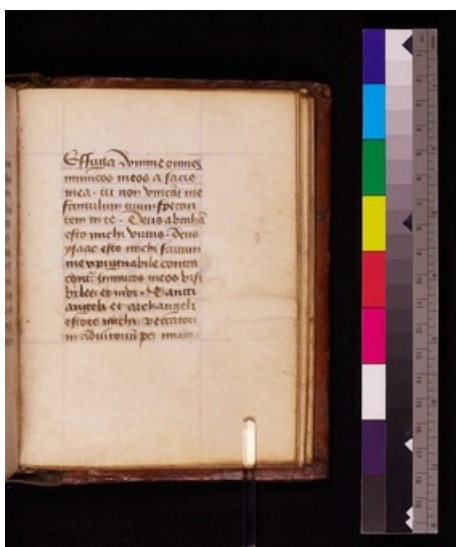 Effuga domine omnes
inimicos meos a facie
mea. ut non vincat me
famulum tuum speran
tem in te. Deus abrahã
esto michi virtus. Deus
ysaac esto michi scutum
inexpugnabile contra
inimicos meos visi
biles et
Sancti
angeli et archangeli
estote michi peccatori
in adiutorium per